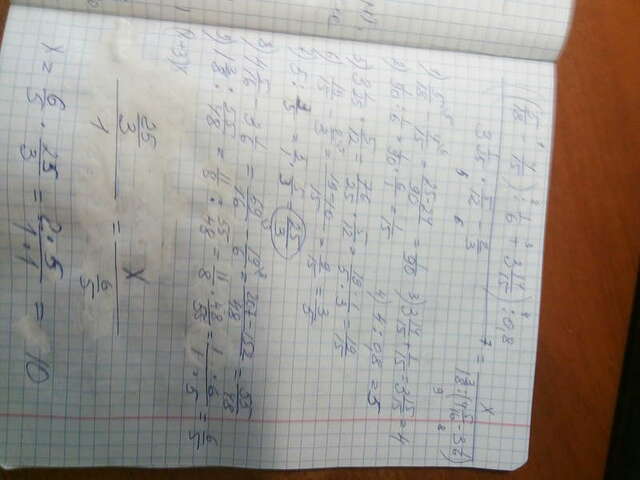 ((5/18 - 4/15) : 1/6 + 3 14/15) : 0,8 / (3 1/25 · 5/12 - 2/3) = x / (1 3/8 : (4 5/16 - 3 1/6))
1) 5/18 - 4/15 = (25-24)/90 = 1/90
2) 1/90 : 1/6 = 1/90 · 6/1 = 1/15
3) 3 14/15 + 1/15 = 3 15/15 = 4
4) 4 : 0,8 = 5
5) 3 1/25 · 5/12 = 76/25 · 5/12 = 19·1/5·3 = 19/15
6) 19/15 - 2/3 = (19-10)/15 = 9/15 = 3/5
7) 5 : 3/5 = 5/1 · 5/3 = 25/3
8) 4 5/16 - 3 1/6 = 69/16 - 19/6 = (207-152)/48 = 55/48
9) 1 3/8 : 55/48 = 11/8 : 55/48 = 11/8 · 48/55 = 1·6/1·5 = 6/5
25/3 / 1 = x / 6/5
x = 6/5 · 25/3 = 2·5/1·1 = 10